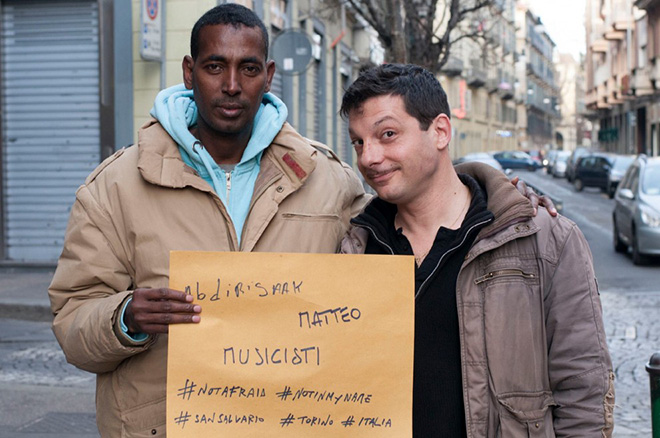 Abdirisaak
MATTEO
MUSICISTI
#NOTAFRAID #NOTINMYNAME
#SANSALVARIO #TORINO #ITALIA